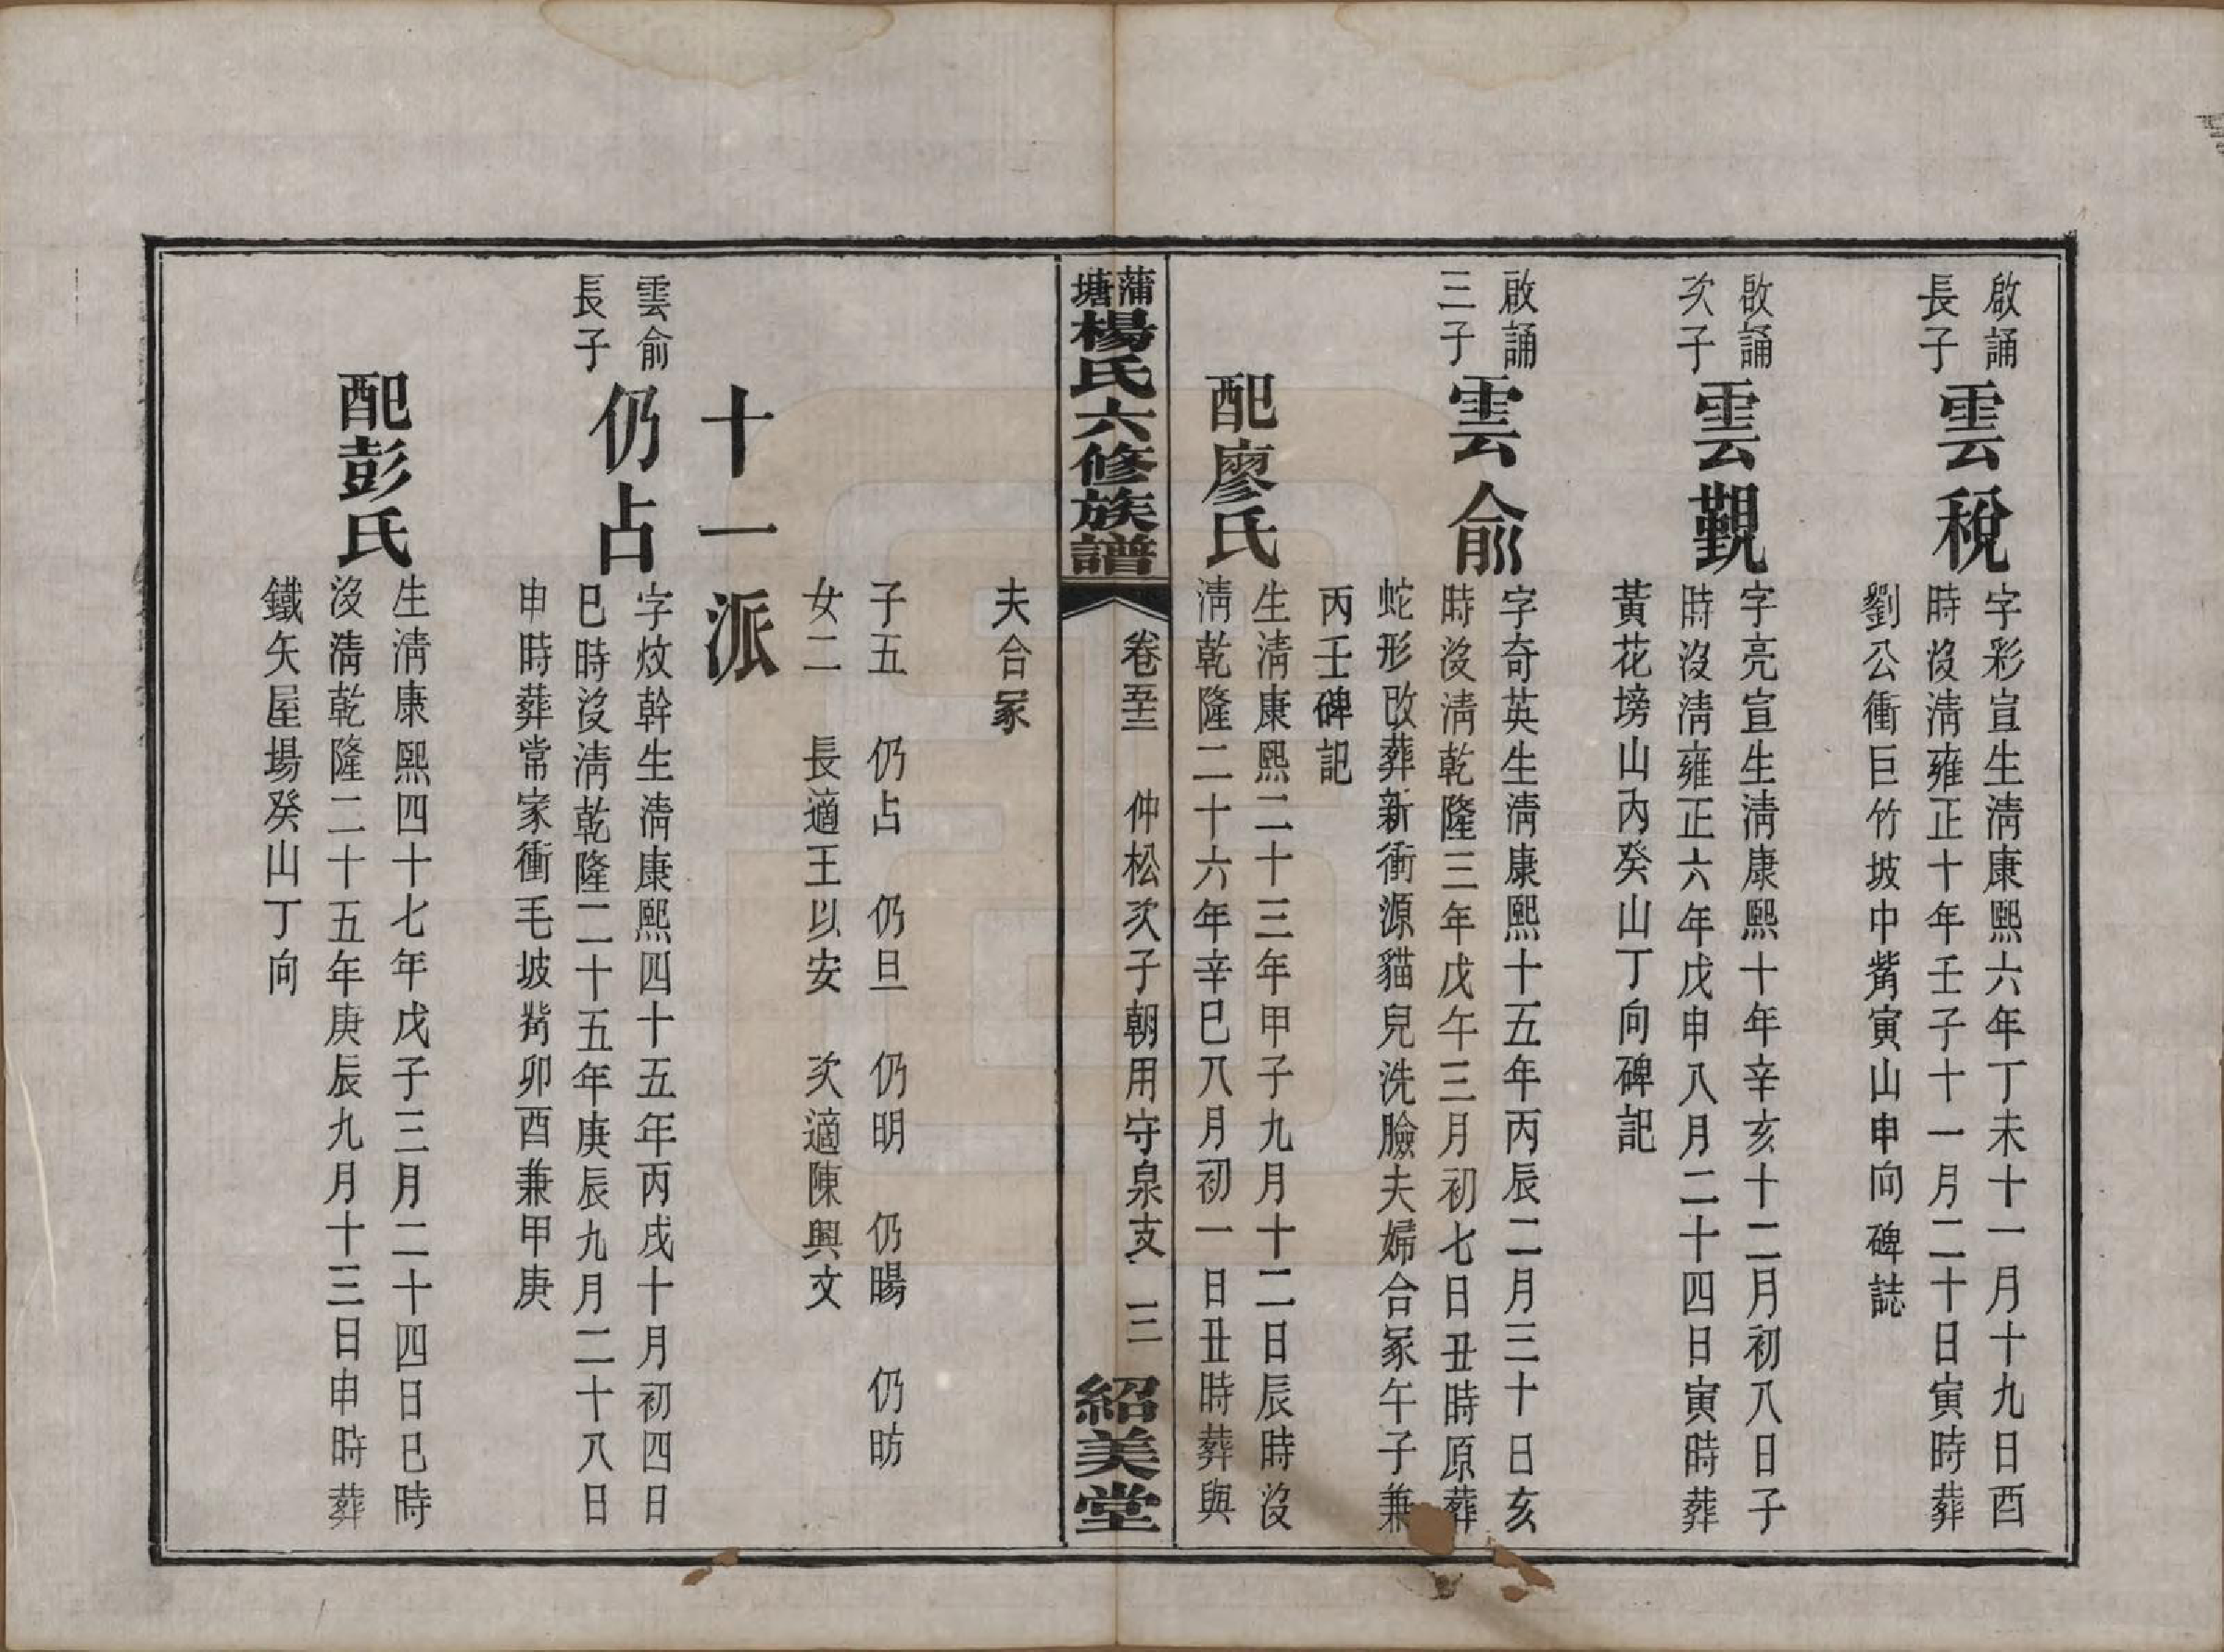 啟誦
長子
雲稅
字彩宣生淸康熙六年丁未十一月十九日酉
時沒淸雍正十年壬子十一月二十日寅時葬
劉公衝巨竹坡中觜寅山申向碑誌
啟誦
次子
雲覲
字亮宣生淸康熙十年辛亥十二月初八日子
時沒淸雍正六年戊申八月二十四日寅時葬
黃花塝山內癸山丁向碑記
啟誦
三子
雲俞
字奇英生淸康熙十五年丙辰二月三十日亥
時沒淸乾隆三年戊午三月初七日丑時原葬
蛇形改葬新衝源貓兒洗臉夫婦合冢午子兼
丙壬碑記
配廖氏
生淸康熙二十三年甲子九月十二日辰時沒
淸乾隆二十六年辛巳八月初一日丑時葬與
蒲塘楊氏六修族譜
卷五十三
仲松次子朝用守泉支
三
紹美堂
夫合冢
子五 仍占 仍旦 仍明 仍暘 仍昉
女二 長適王以安 次適陳興文
十一派
雲俞
長子
仍占
字炆幹生淸康熙四十五年丙戌十月初四日
巳時沒淸乾隆二十五年庚辰九月二十八日
申時葬常家衝毛坡觜卯酉兼甲庚
配彭氏
生淸康熙四十七年戊子三月二十四日巳時
沒淸乾隆二十五年庚辰九月十三日申時葬
鐵矢屋場癸山丁向